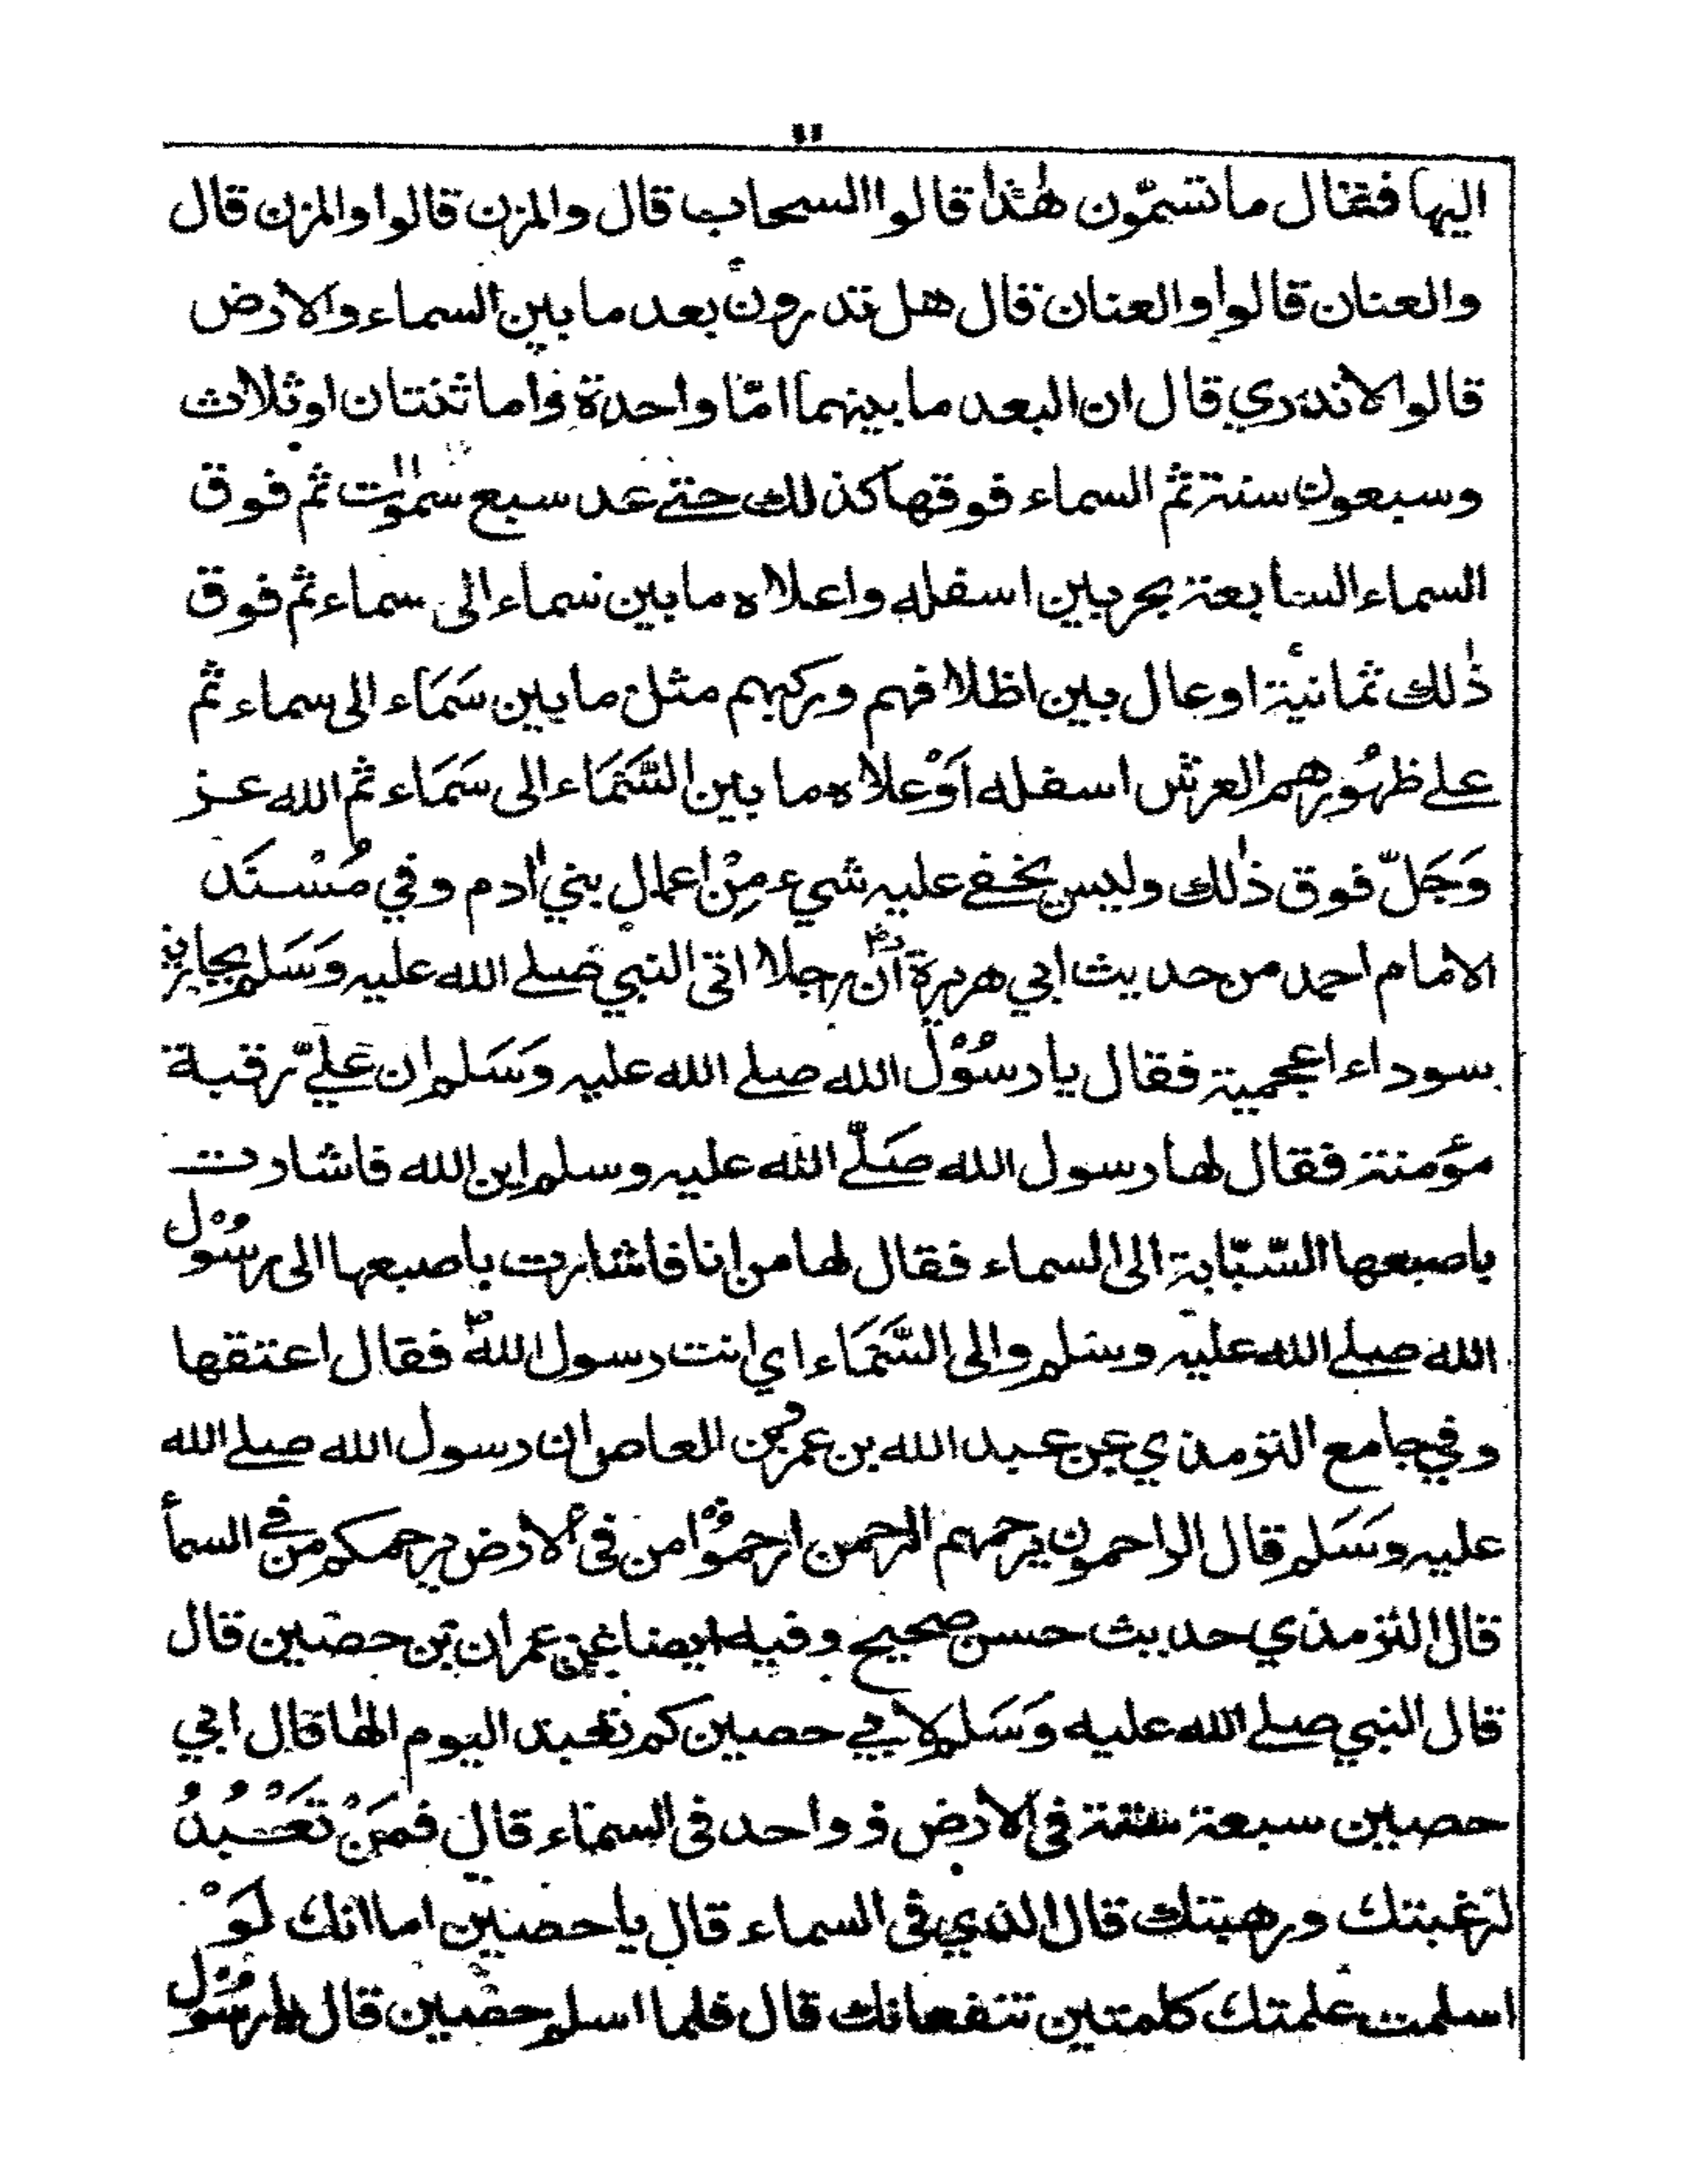 ١١
اليها فقال ما تسمّون هٰذا قالوا السحاب قال والمزن قالوا والمزن قال
والعنان قالوا والعنان قال هل تدرون بعد ما بين السماء والارض
قالوا لا ندري قال ان البعد ما بينهما امّا واحدة واما ثنتان او ثلاث
وسبعون سنة ثم السماء فوقها كذلك حتى عد سبع سمٰوٰت ثم فوق
السماء السابعة بحر بين اسفله واعلاه ما بين سماء الى سماء ثم فوق
ذٰلك ثمانية اوعال بين اظلافهم وركبهم مثل ما بين سَمَاء الى سماء ثم
على ظهُورهم العرش اسفله اَوْعلاه ما بين السَّمَاء الى سَمَاء ثم الله عز
وَجَلّ فوق ذٰلك وليس يخفى عليه شيء مِنْ اعمال بني اٰدم وفي مُسْنَد
الامام احمد من حديث ابي هريرة رض اَنّ رجلا اتى النبي صلى الله عليه وَسَلم بجارية
سوداء اعجمية فقال يا رسُوْل الله صلى الله عليه وَسَلم ان عليّ رقبة
مؤمنة فقال لها رسول الله صَلّى الله عليه وسلم اين الله فاشارت
باصبعها السّبّابة الى السماء فقال لها من انا فاشارت باصبعها الى رسُوْل
الله صلى الله عليه وسلم والى السَّمَاء اي انت رسول الله فقال اعتقها
وفي جامع الترمذي عن عبد الله بن عمرو بن العاص ان رسول الله صلى الله
عليه وَسَلم قال الراحمون يرحمهم الرحمن ارحمُوْا من فى الارض يرحمكم من في السمأ
قال الترمذي حديث حسن صحيح وفيه ايضا عن عمران بن حصين قال
قال النبي صلى الله عليه وَسَلم لابي حصين كم تعبد اليوم الٰها قال ابي
حصين سبعة ستة فى الارض و واحد فى السماء قال فمَنْ تَعْبُدُ
لرغبتك ورهبتك قال الذي فى السماء قال يا حصين اما انك لَوْ
اسلمت علمتك كلمتين تنفعانك قال فلما اسلم حصين قال يا رسُوْل